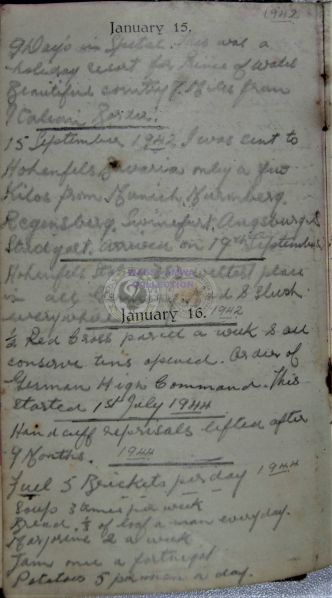 1942
January 15.
9 Days in Spital. This was a
holiday resort for Prince of Wales
Beautiful country 7 Miles from
Italian Border.
15 September 1942 I was sent to
Hohenfels Bavaria only a few
Kilos from Munich, Nurmberg,
Regensburg, Swinefurt, Augsburg &
Studgart. arrived on 19th September
Hohenfels wettest place
in all & Slush
everywhere
WARSAMWA
COLLECTION
1942
January 16.
½ Red Cross parcel a week & all
conserve tins opened. Order of
German High Command. This
started 1st July 1944
Handcuff reprisals lifted after
9 Months. 1944
Fuel 5 Brickets per day 1944
Soup 3 times per week
Bread of loaf a man everyday.
Marjorine 2 a week
Jam once a fortnight
Potatoes 5 per man a day.